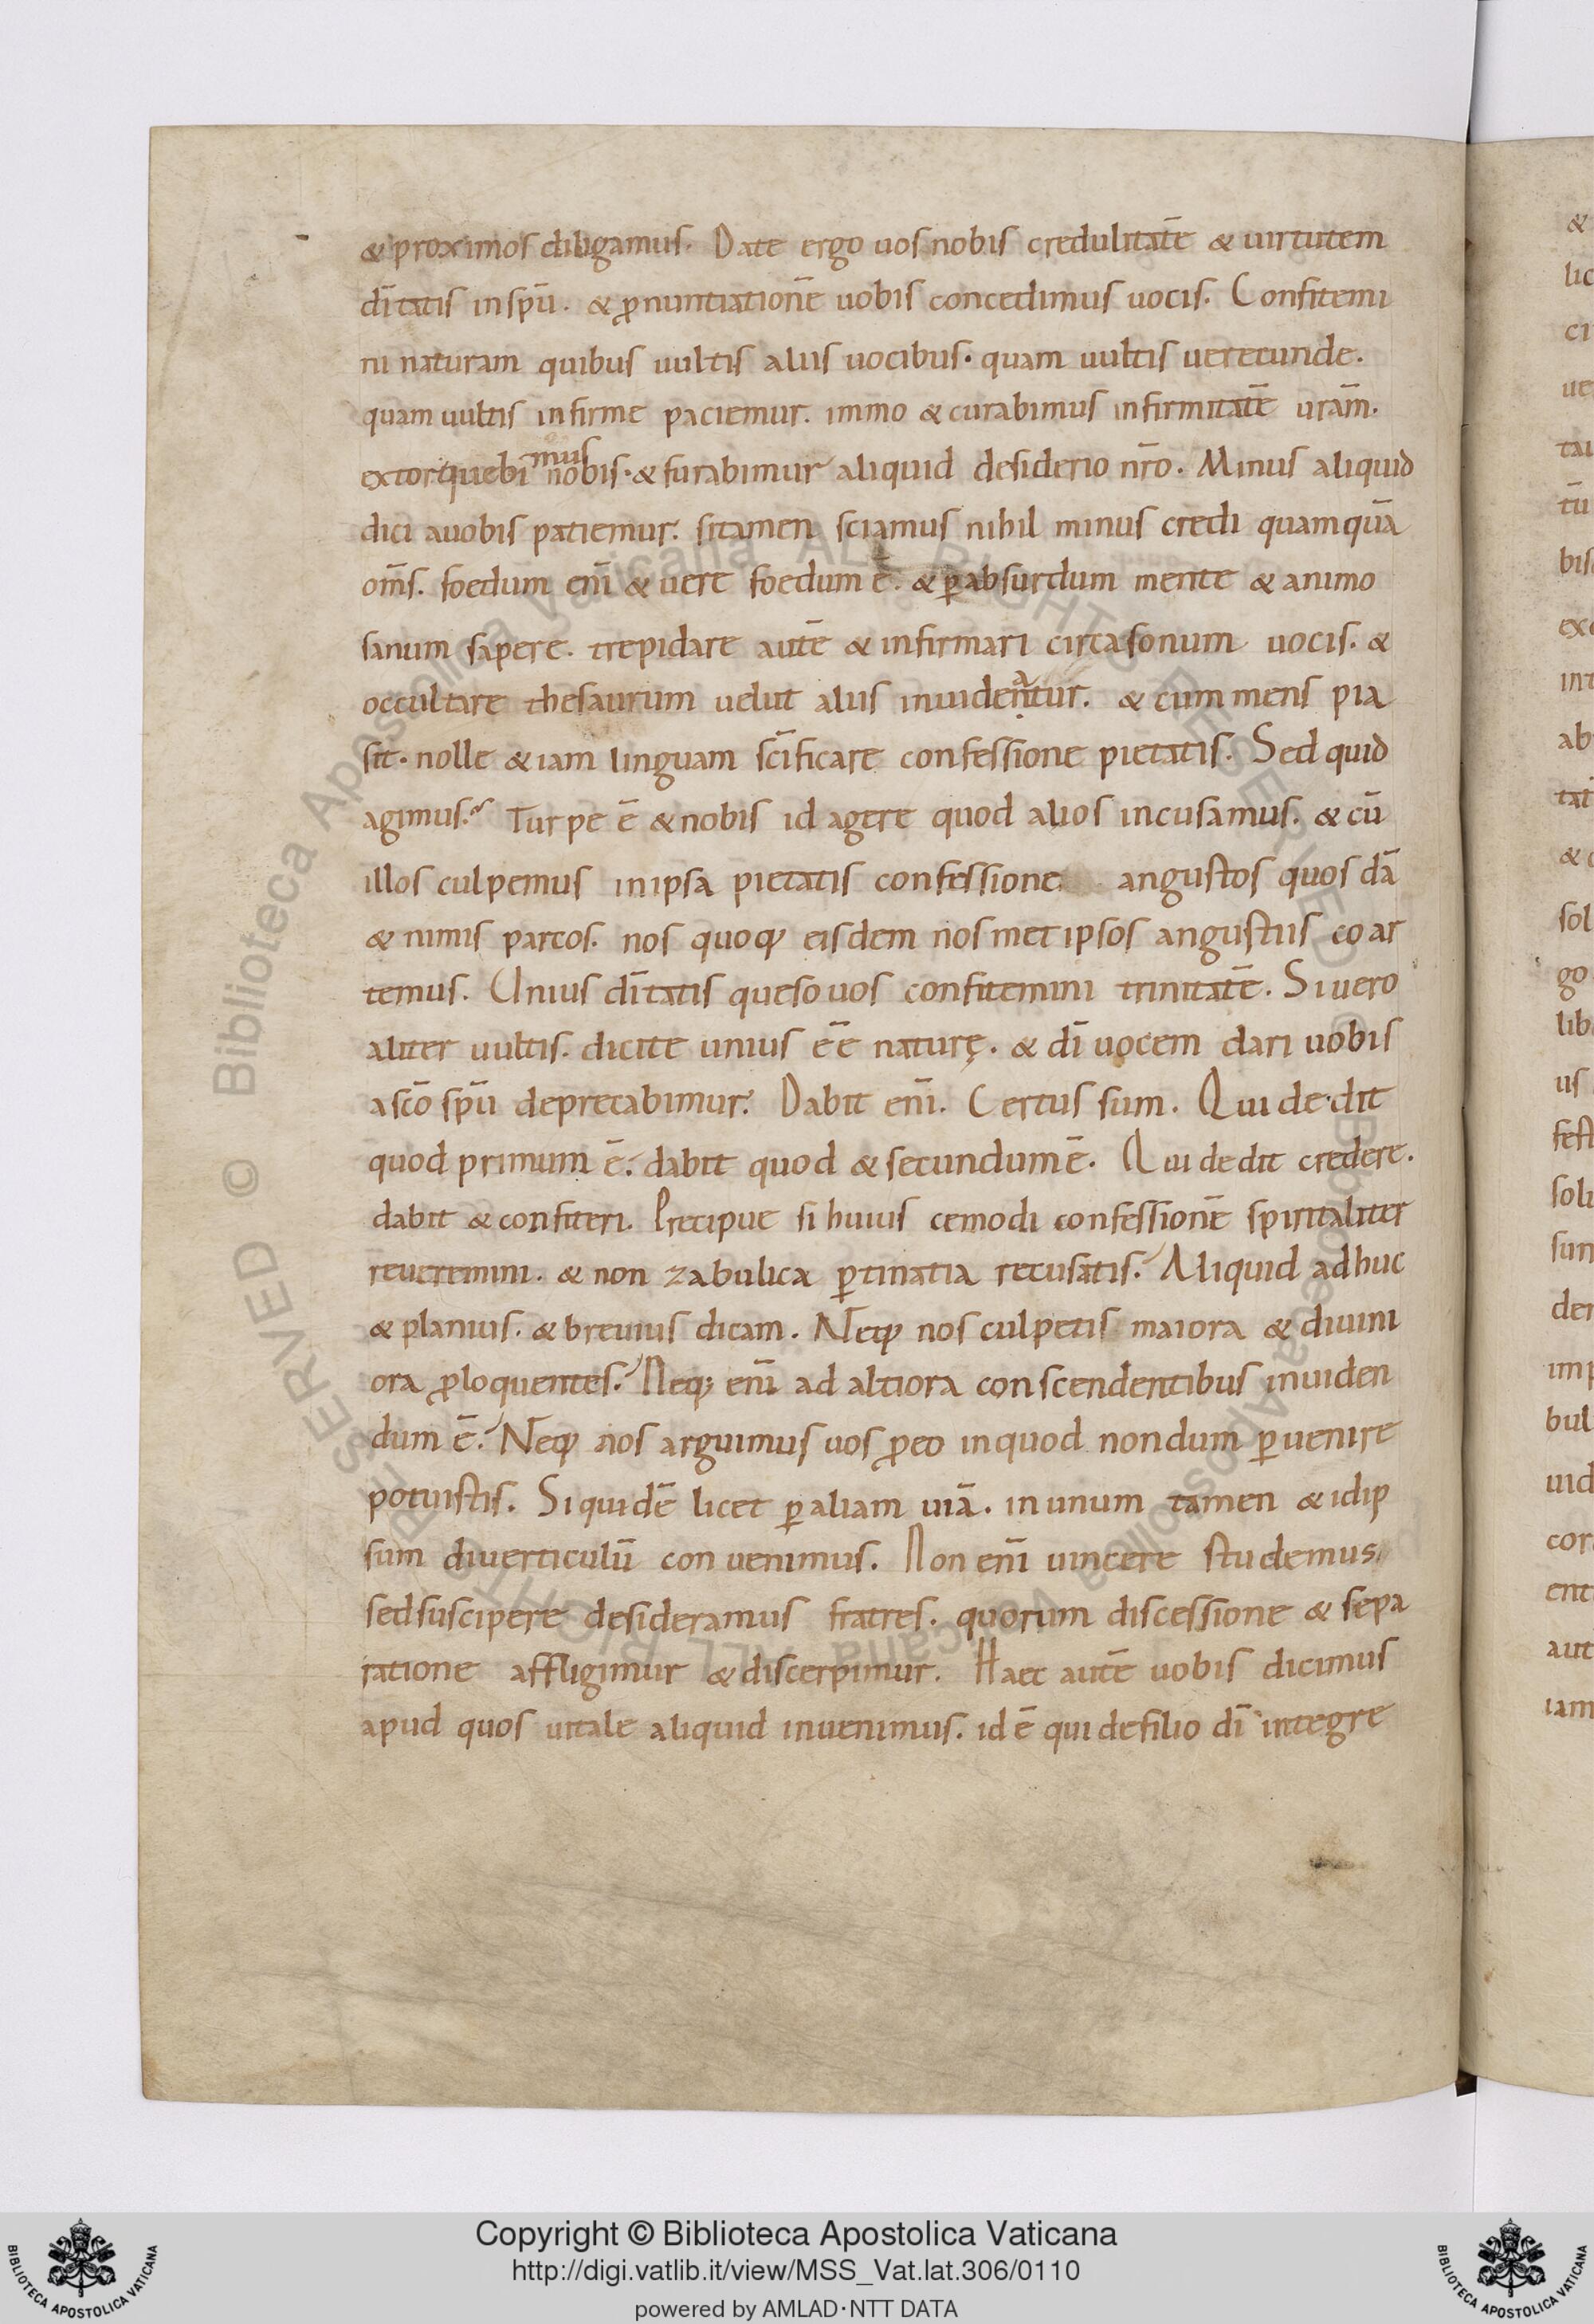 & proximos diligamus. Date ergo uos nobis credulitatē & uirtutem
dī tatis in spū. & ꝓnuntiationē uobis concedimus uocis. Confitemi
ni naturam quibus uultis aliis uocibus. quam uultis uerecunde.
quam uultis infirme paciemur. immo & curabimus infirmitatē urām.
extorquebimus nobis. & furabimur aliquid desiderio nr̄o. Minus aliquid
dici auobis patiemur. sitamen sciamus nihil minus credi quamquā
om̄s. foedum enī & uere foedum ē. & ꝑabsurdum mente & animo
sanum sapere. trepidare autē & infirmari circa sonum uocis. &
occultare thesaurum uelut aliis inuideñatur. & cum mens pia
sit. nolle &iam linguam sc̄ificare confessione pietatis. Sed quid
agimus? Turpe ē & nobis id agere quod alios incusamus. & cū
illos culpemus in ipsa pietatis confessione angustos quos dā
& nimis parcos. nos quoq; eisdem nosmet ipsos angustiis coar
temus. Unius dī tatis queso uos confitemini trinitatē. Si uero
aliter uultis. dicite unius eē̄ naturę. & dī uocem dari uobis
a sc̄o spū deprecabimur. Dabit enī. Certus sum. Qui dedit
quod primum ē. dabit quod & secundum ē. Qui dedit credere.
dabit & confiteri. Precipue si huius cemodi confessionē spiritaliter
reueremini. & non zabulica ꝑtinatia recusatis. Aliquid adhuc
& planius. & breuius dicam. Neq; nos culpetis maiora & diuini
ora ꝓloquentes. Neq; enī ad altiora conscendentibus inuiden
dum ē. Neq; nos arguimus uos ꝓeo inquod nondum ꝑuenire
potuistis. Siquidē licet ꝑ aliam uiā. in unum tamen & idip
sum diuerticulū conuenimus. Non enī uincere studemus
sed suscipere desideramus fratres. quorum discessione & sepa
ratione affligimur & discerpimur. Haec autē uobis dicimus
apud quos uitale aliquid inuenimus. id ē qui defilio dī integre
&
lic
ci
ue
tai
tū
bis
exc
int
ab
tat
& c
sol
go
lib
us
fest
solu
sun
der
imp
bul
uid
cor
ent
aut
iam
© Biblioteca Apostolica Vaticana ALL RIGHTS RESERVED © Biblioteca Apostolica Vaticana ALL RIGHTS RESERVED
Copyright © Biblioteca Apostolica Vaticana
http://digi.vatlib.it/view/MSS_Vat.lat.306/0110
powered by AMLAD·NTT DATA
BIBLIOTECA APOSTOLICA VATICANA
BIBLIOTECA APOSTOLICA VATICANA